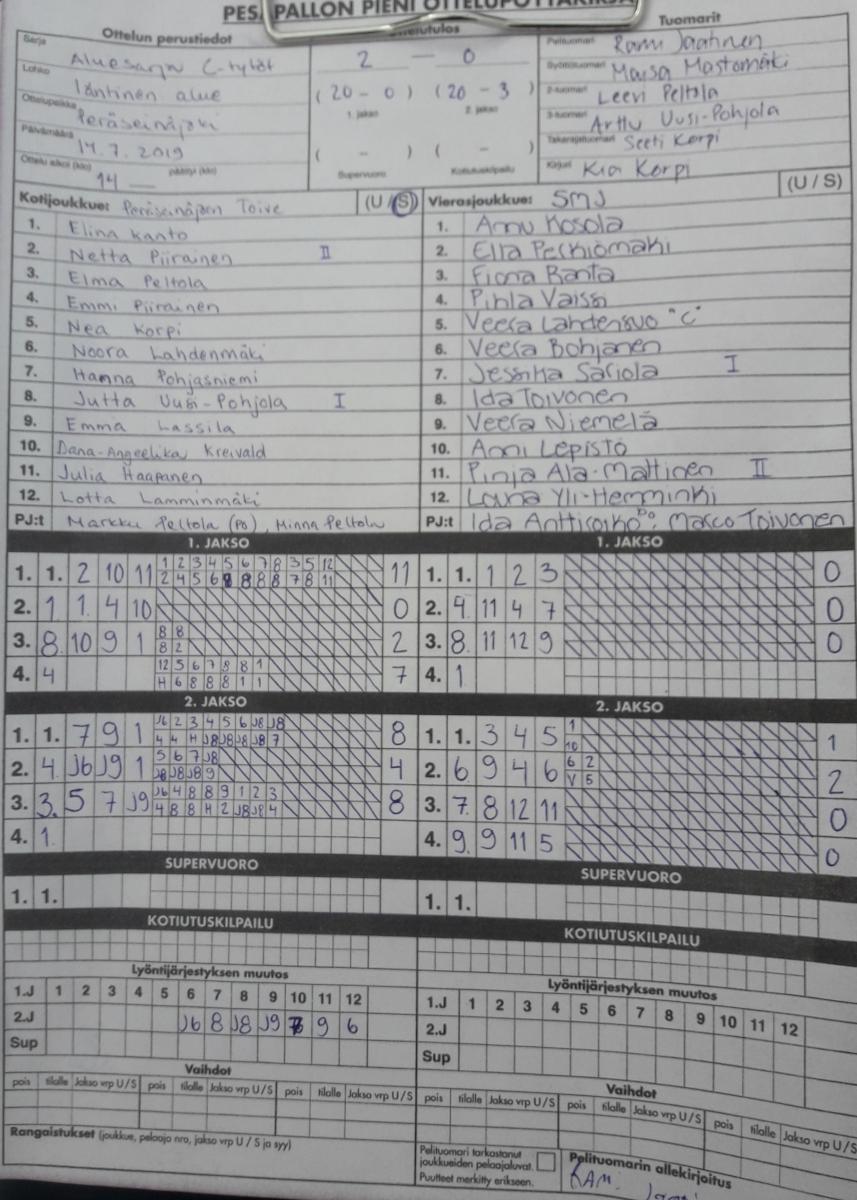 PESÄPALLON PIENI OTTELUPÖYTÄKIRJA
Ottelun perustiedot
Sarja Aluesarja C-tytöt
Lohko läntinen alue
Ottelupaikka Peräseinäjoki
Päivämäärä 14.7.2019
Ottelu alkoi (klo) 14 päättyi (klo)
Ottelutulos
2 — 0
(20 - 0) (20 - 3)
1. jakso 2. jakso
( - ) ( - )
Supervuoro Kotiutuskilpailu
Tuomarit
Pelituomari Ramu Jaahnen
Syöttötuomari Maisa Mastomäki
2-tuomari Leevi Peltola
3-tuomari Arttu Uusi-Pohjola
Takarajatuomari Seeti Korpi
Kirjuri Kia Korpi
Kotijoukkue: Peräseinäjoen Toive (U / S)
1. Elina Kanto
2. Netta Piirainen II
3. Elma Peltola
4. Emmi Piirainen
5. Nea Korpi
6. Noora Lahdenmäki
7. Hanna Pohjasniemi
8. Jutta Uusi-Pohjola I
9. Emma Lassila
10. Dana-Angeelika Kreivald
11. Julia Haapanen
12. Lotta Lamminmäki
PJ:t Markku Peltola (PO), Minna Peltola
Vierasjoukkue: SMJ (U / S)
1. Annu Kosola
2. Ella Perkiömäki
3. Fiona Ranta
4. Pihla Vaissi
5. Veera Lahdensuo "C"
6. Veera Bohjanen
7. Jessika Sariola I
8. Ida Toivonen
9. Veera Niemelä
10. Anni Lepistö
11. Pinja Ala-Mattinen II
12. Launa Yli-Hemminki
PJ:t Ida Anttiroiko PO, Marco Toivonen
1. JAKSO
1. 1. 2 10 11 1 2 3 4 5 6 7 8 3 5 12 11
2 4 5 6 8 8 8 8 7 8 11
2. 1. 1. 4 10 0
3. 8. 10 9 1 8 8 2
8 2
4. 4 12 5 6 7 8 8 1 7
H 6 8 8 8 1 1
1. JAKSO
1. 1. 1 2 3 0
2. 4. 11 4 7 0
3. 8. 11 12 9 0
4. 1.
2. JAKSO
1. 1. 7 9 1 J6 2 3 4 5 6 J8 J8 8
4 4 H J8 J8 J8 J8 7
2. 4. J6 J9 1 5 6 7 J8 4
J8 J8 J8 9
3. 3. 5 7 J9 J6 4 8 8 9 1 2 3 8
4 8 8 H 2 J8 J8 4
4. 1.
2. JAKSO
1. 1. 3 4 5 1 1
10
2. 6 9 4 6 6 2 2
V 5
3. 7. 8 12 11 0
4. 9. 9 11 5 0
SUPERVUORO
1. 1.
SUPERVUORO
1. 1.
KOTIUTUSKILPAILU
KOTIUTUSKILPAILU
Lyöntijärjestyksen muutos
1.J 1 2 3 4 5 6 7 8 9 10 11 12
2.J J6 8 J8 J9 7 9 6
Sup
Lyöntijärjestyksen muutos
1.J 1 2 3 4 5 6 7 8 9 10 11 12
2.J
Sup
Vaihdot
pois tilalle Jakso vrp U/S pois tilalle Jakso vrp U/S pois tilalle Jakso vrp U/S
Vaihdot
pois tilalle Jakso vrp U/S pois tilalle Jakso vrp U/S pois tilalle Jakso vrp U/S
Rangaistukset (joukkue, pelaaja nro, jakso vrp U / S ja syy)
Pelituomari tarkastanut
joukkueiden pelaajaluvat.
Puutteet merkitty erikseen.
Pelituomarin allekirjoitus